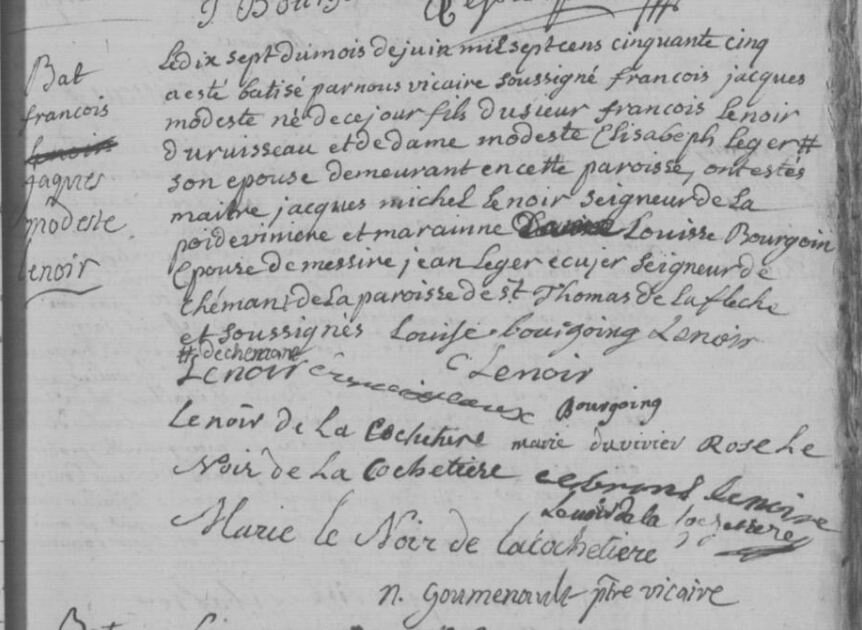 Bat
francois
lenoir
jaques
modeste
lenoir
Ledix sept dumois dejuin mil sept cens cinquante cinq
aesté batisé parnous vicaire soussigné francois jacques
modeste né decejour fils dusieur francois lenoir
duruisseau et dedame modeste Elisabeph leger #
son epouse demeurant encette paroisse, ont estés
maitre jacques michel lenoir seigneur de La
poidevinere et marainne Dame Louisse Bourgoin
Epouse demessire jean Leger ecujer seigneur de
Chémant de La paroisse de st Thomas de La fleche
et soussignés Louise bourgoing Lenoir
# dechemant
Lenoir
Lenoir
Bourgoing
Lenoir de La Cochetiere marie duvivier Rose Le
Noir de La Cochetiere lenoir
Lenoir de la cochetiere
Marie le Noir de lacochetiere
n. Goumenault ptre vicaire
Bat